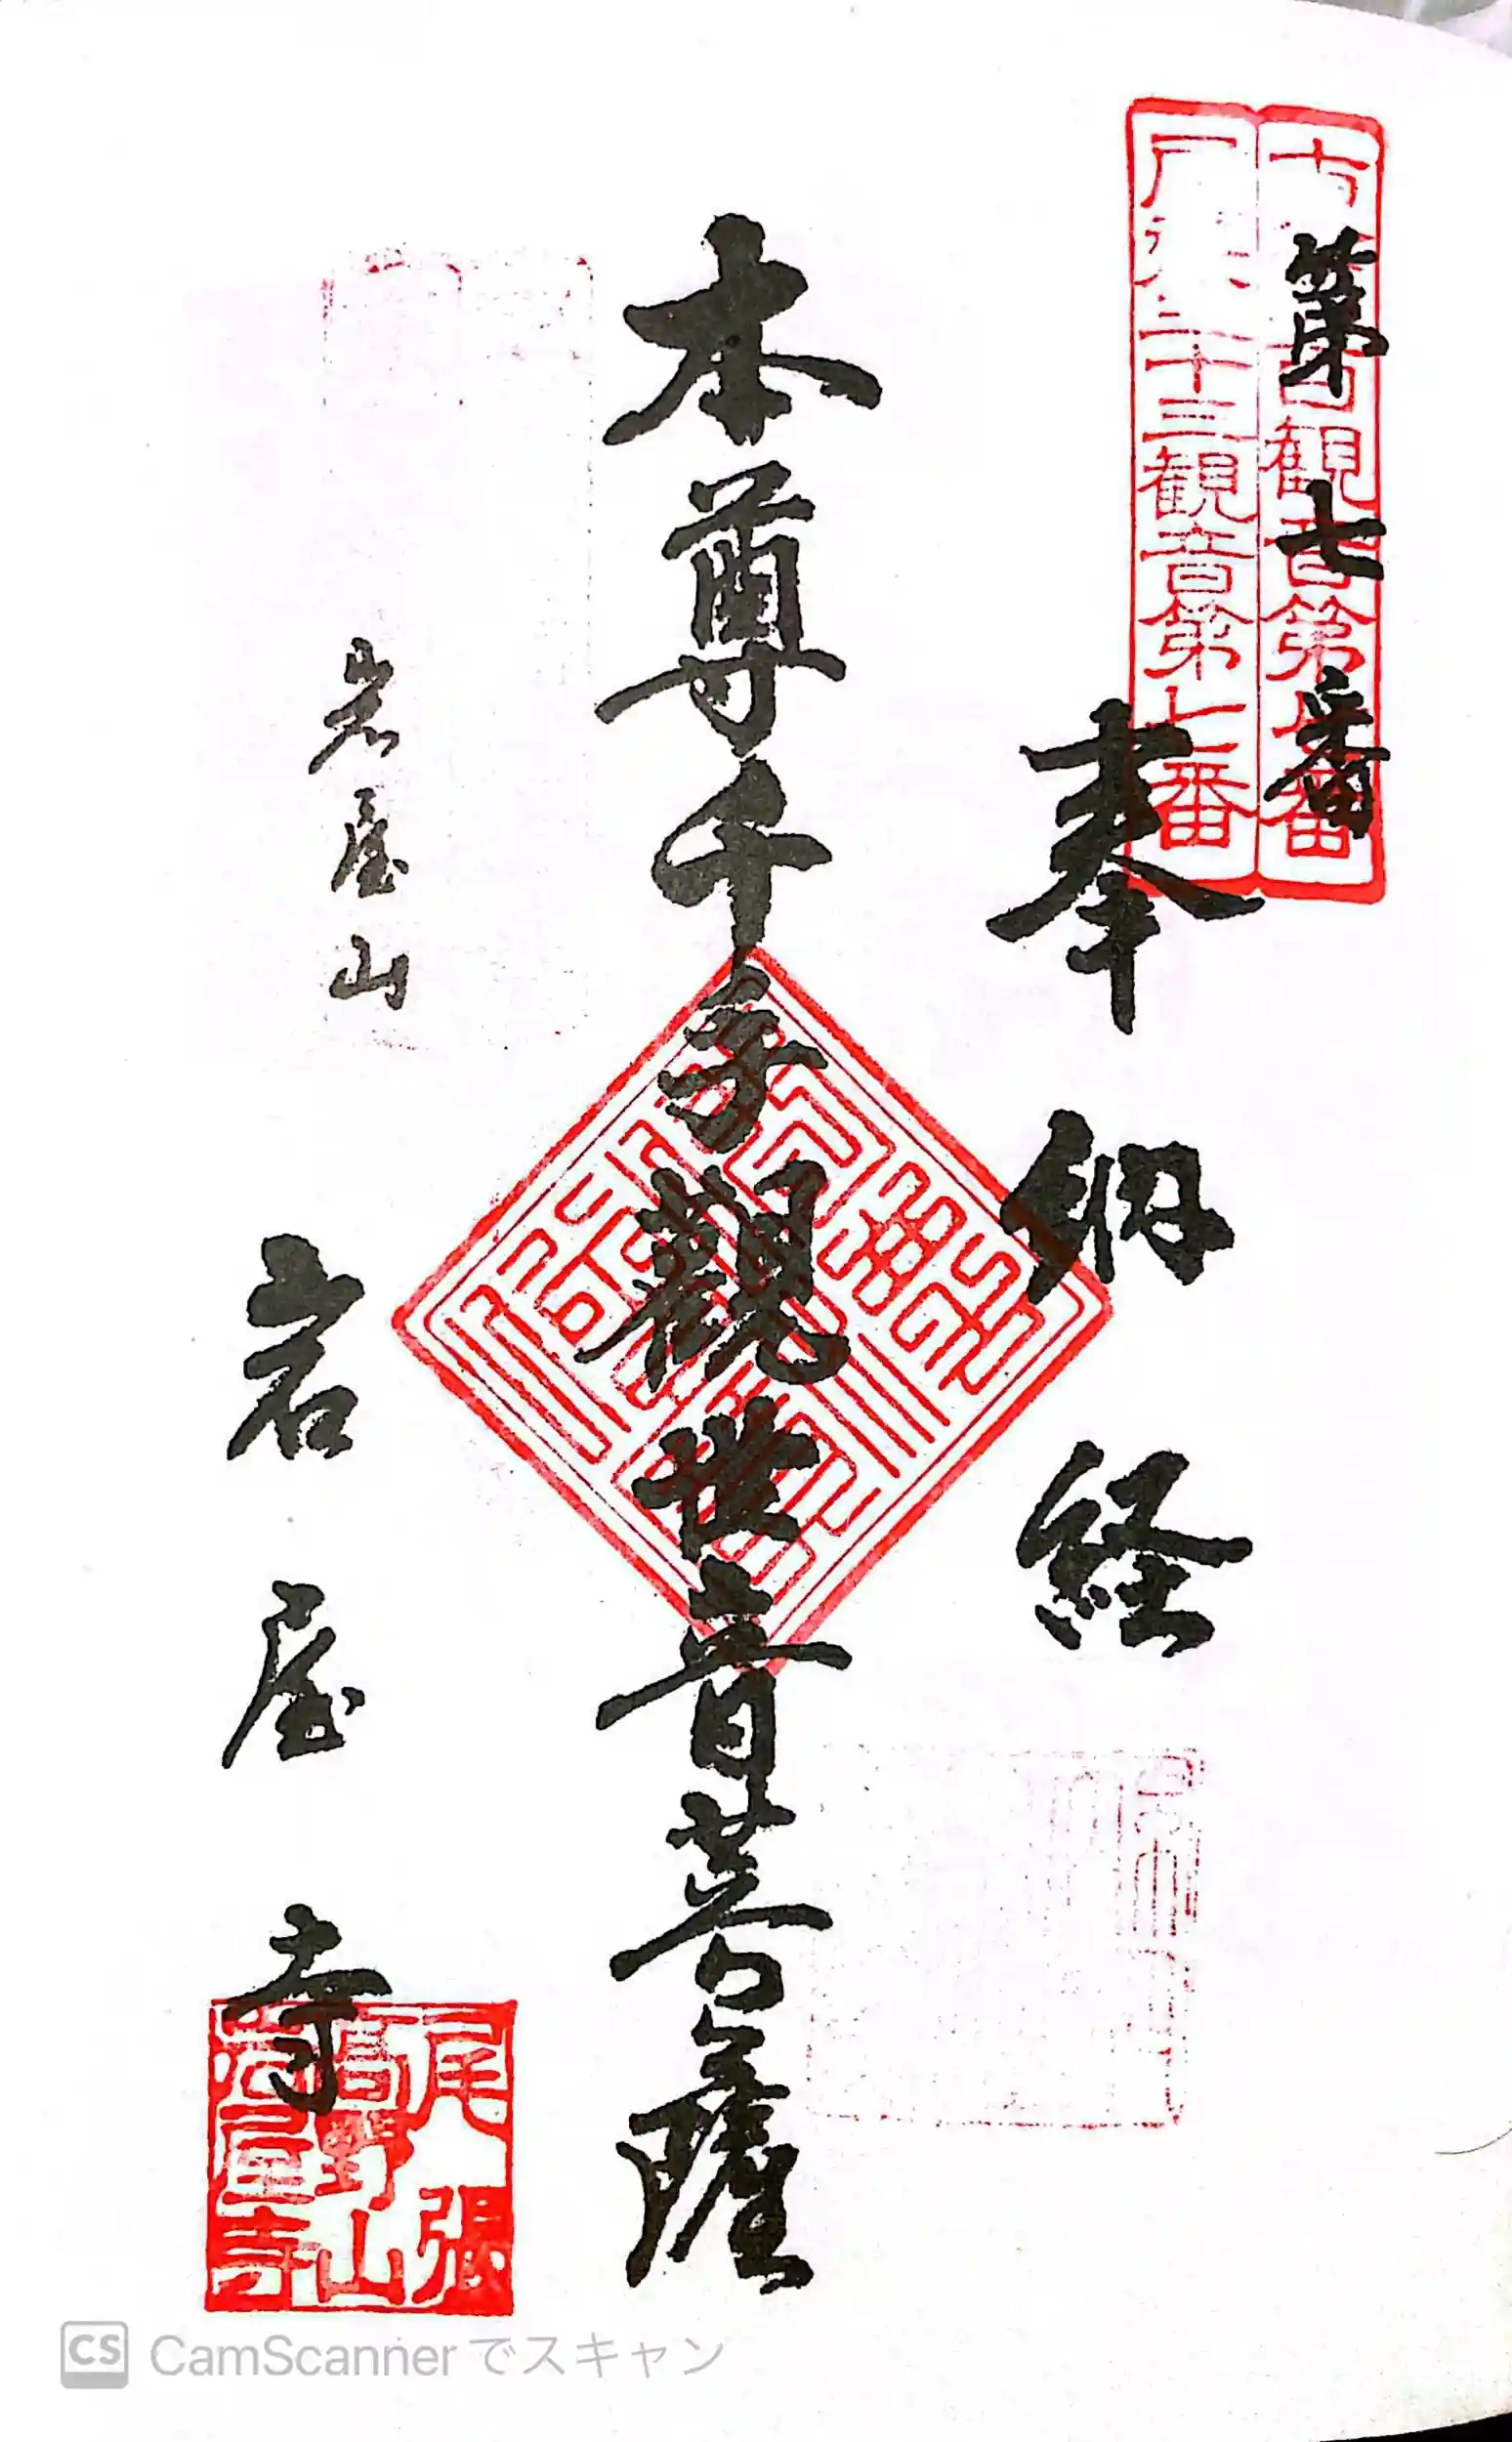 第七番
尾張三十三観音第七番
奉納経
本尊千手観世音菩薩
岩屋山
岩屋寺
尾張
高野山
岩屋寺
CS CamScannerでスキャン